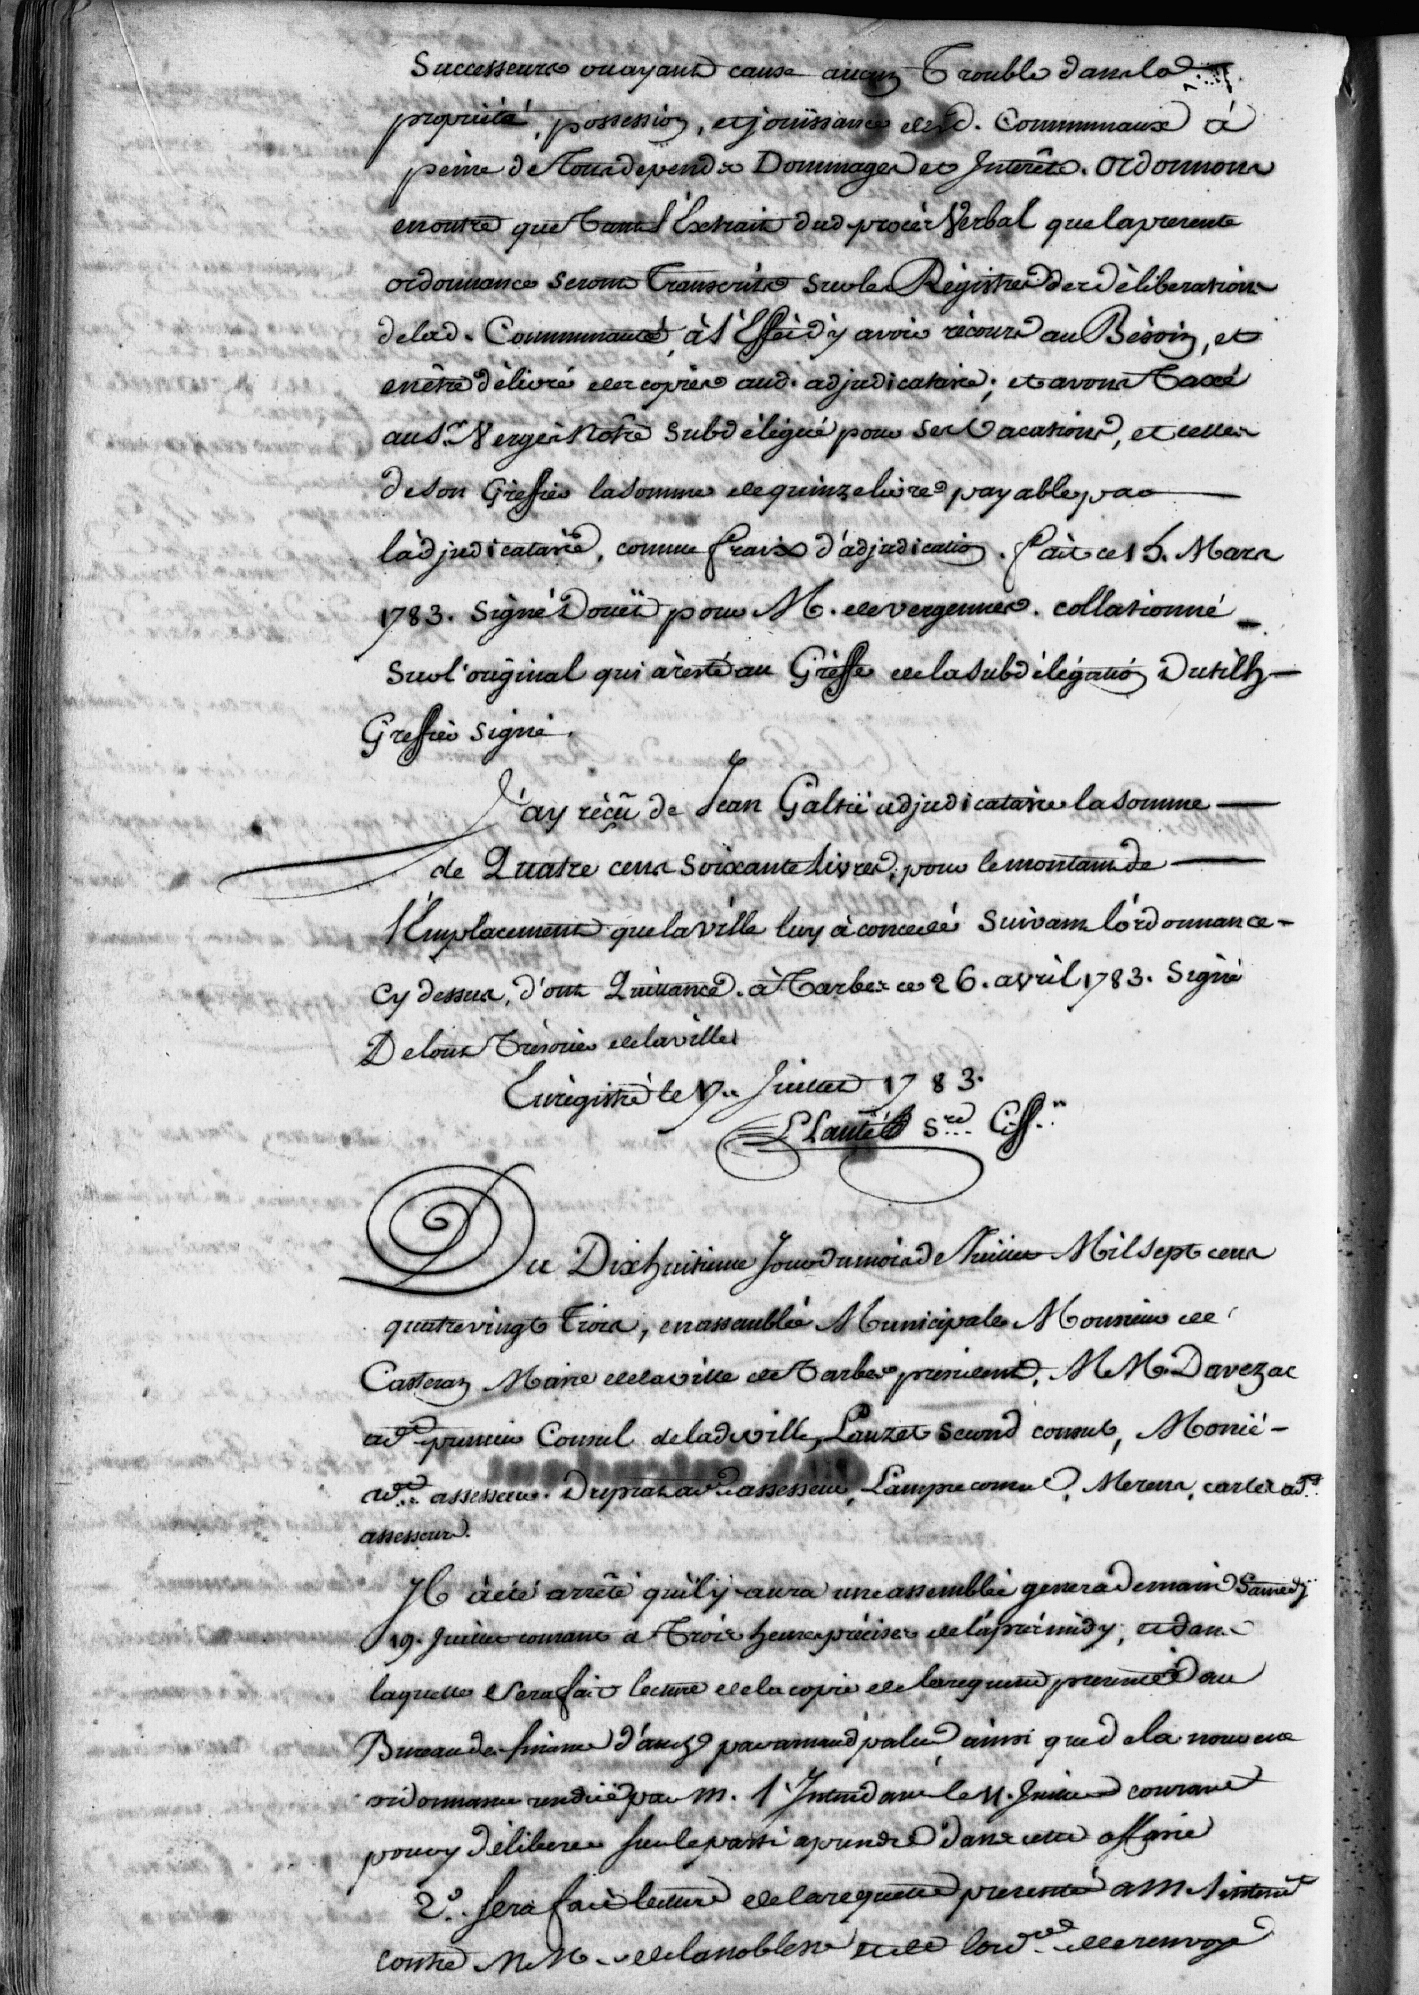 Successeurs ou ayant cause aucun Trouble dans la
propriété, possession, et jouissance desd. Communaux à
peine de Tous depends Dommages et Interêts. Ordonnons
en outre que Tant l'Extrait dud procès Verbal que la presente
ordonnance seront Transcrits sur les Régistres des déliberations
de lad. Communauté, à l'Effêt d'y avoir récours au Bésoin, et
en être délivré des copies aud. adjudicataire; et avons Taxé
au Sr. Verges Notre Subdélégué pour ses Vacations, et celles
de son Greffier la somme de quinze livres payable par
ladjudicataire, comme fraix d'adjudication. fait ce 15. Mars
1783. Signé Doüet pour M. de vergennes. collationné
sur l'original qui à resté au Gréffe de la subdélégation Dutilh
Greffier signé.
J'ay réçû de Jean Galtié adjudicataire la somme
de Quatre cens soixante Livres, pour le montant de
l'Emplacement que la ville luy à concedé suivant l'ordonnance
cy dessus, d'ont Quittance. à Tarbes ce 26. avril 1783. Signé
Delom Trésorier de la ville
Enrégistré le 17.. Juillet 1783.
Lanté Sre.. Gff..
Du Dixhuitieme Jour du mois de Juillet Mil sept cens
quatrevingt Trois, en assemblée Municipale Monsieur de
Casteran Maire de la ville de Tarbes president, MM Davezac
ad premier Consul de lad ville, Lauzet second consul, Monié
assesseur. Duprat av. assesseur, Lampre consul, Merens, carles
assesseurs.
Il à été arrêté qu'il y aura une assemblée genera demain Samedy
19. Juillet courant à Trois heures précises de l'après midy, et dans
laquelle sera fait lecture de la copie de la requette presentée au
Bureau des finance d'auch par armand palu ainsi que de la nouvelle
ordonnance rendüe par m. l'Intendant le 11. Juillet courant
pour y déliberer sur le parti a prendre dans cette affaire
2º. sera fait lecture de la requette presentée a M l'intend
contre MM. de la noblesse et de lord. de renvoy